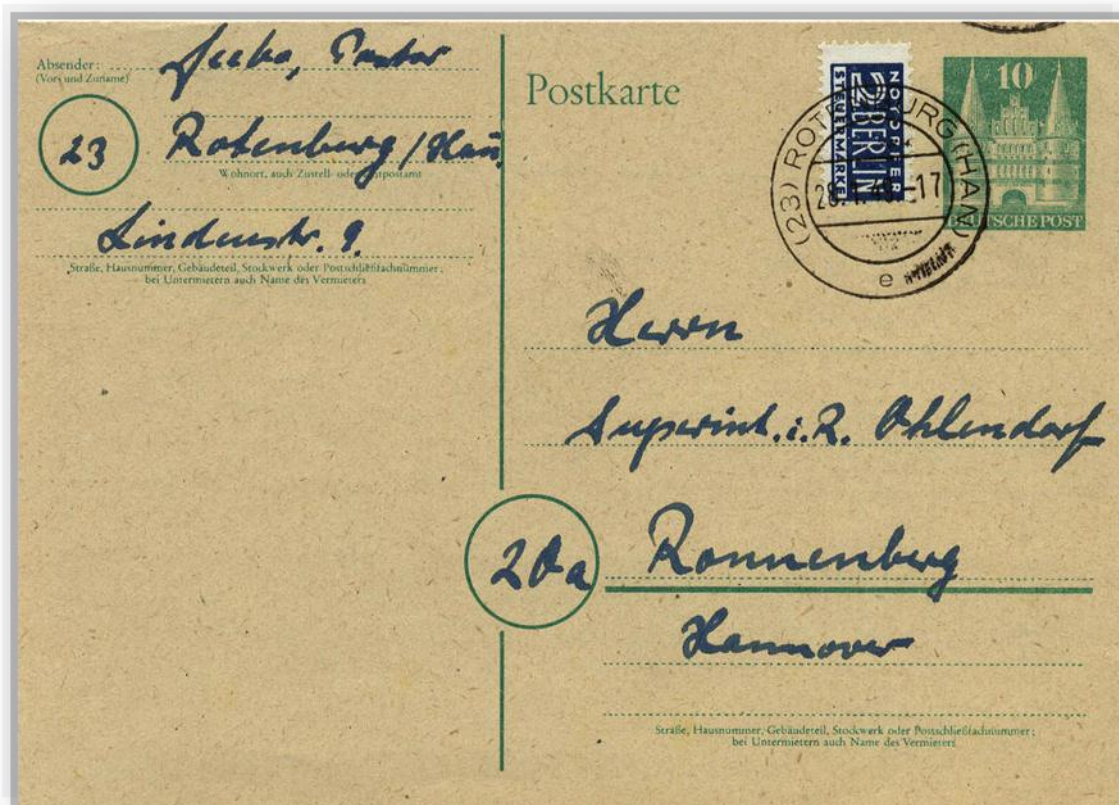 Absender:
(Vor- und Zuname)
Pastor
23
Rotenburg/Han.
Wohnort, auch Zustell- oder Leitpostamt
Lindenstr. 9.
Straße, Hausnummer, Gebäudeteil, Stockwerk oder Postschließfachnummer;
bei Untermietern auch Name des Vermieters
Postkarte
NOTOPFER
2 BERLIN
STEUERMARKE
(23) ROTENBURG (HAN)
28.1.49.-17
e
10
DEUTSCHE POST
Herrn
Superint. i. R. Ohlendorf
20a
Ronnenberg
Hannover
Straße, Hausnummer, Gebäudeteil, Stockwerk oder Postschließfachnummer;
bei Untermietern auch Name des Vermieters